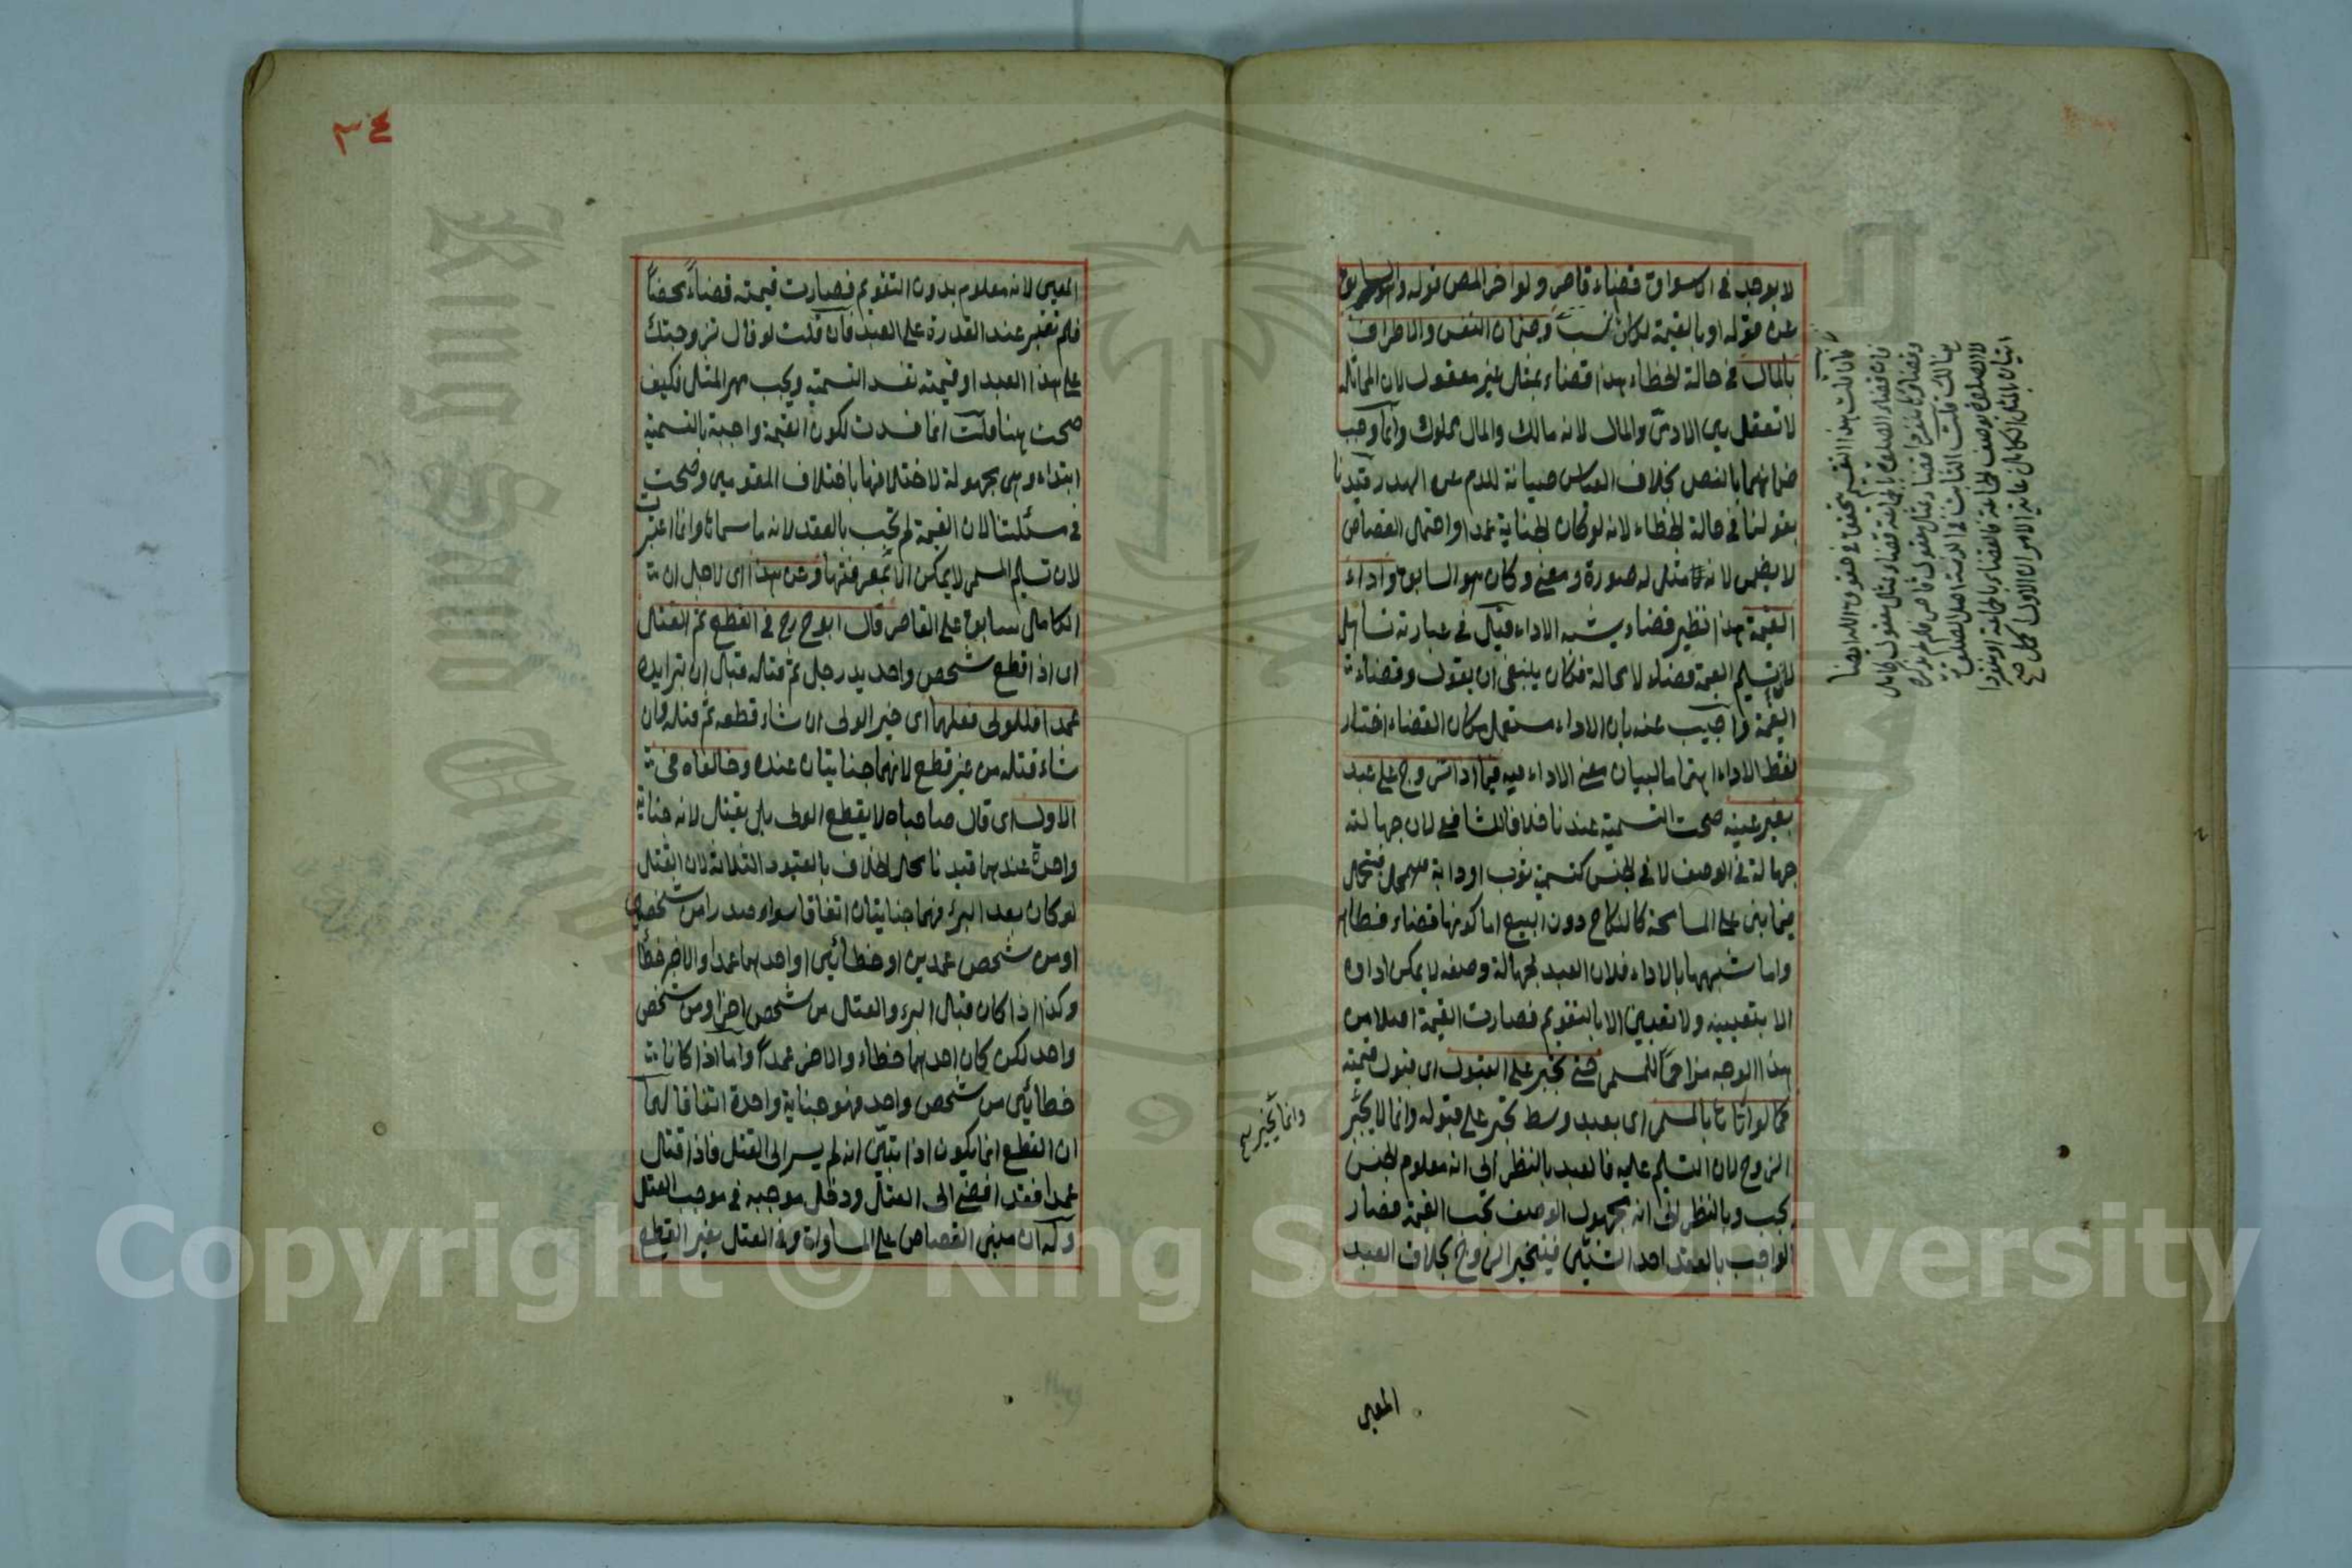 لا يوجد في الاسواق قضاء قاصر ولو اخر المص قوله والسابق
عن قوله او بالقيمة لكان انسب وضمان النفس والاطراف
بالمال في حالة الخطاء هذا قضاء بمثل غير معقول لان المماثلة
لا تعقل بين الادمي والمال لانه مالك والمال مملوك وانما وجب
ضمانهما بالنص بخلاف القياس صيانة للدم عن الهدر قيدنا
بقولنا في حالة الخطاء لانه لو كان الجناية عمدا واحتمل القصاص
لا يضمن لانه مثل له صورة ومعنى وكان هو السابق واداء
القيمة هذا نظير قضاء يشبه الاداء قيل في عبارته تساهل
لان تسليم القيمة قضاء لا محالة فكان ينبغي ان يقول وقضاء
القيمة واجيب عنه بان الاداء مستعمل مكان القضاء اختار
لفظ الاداء اهتماما لبيان معنى الاداء فيه فيما اذا تزوج على عبد
بغير عينه صحت التسمية عندنا خلافا للشافعي لان جهالته
جهالة في الوصف لا في الجنس كتسمية ثوب او دابة فيتحمل
فيما بني على المسامحة كالنكاح دون البيع اما كونها قضاء فظاهر
واما شبهها بالاداء فلان العبد لجهالة وصفه لا يمكن اداؤه
الا بتعيينه ولا تعيين الا بالتقويم فصارت القيمة اصلا من
هذا الوجه مزاحما للمسمى حتى تجبر على القبول اى قبول قيمته
كما لو اتاها بالمسمى اى بعبد وسط تجبر على قبوله وانما لا يجبر
الزوج لان التسليم عليه فالعبد بالنظر الى انه معلوم الجنس
يجب وبالنظر الى انه مجهول الوصف تجب القيمة فصار
الواجب بالعقد احد الشيئين فيتخير الزوج بخلاف العبد
المعين
فان قلت هذا التقسيم يتحقق في حقوق الله ايضا
فان قضاء الصلوة بالجماعة قضاء بمثل معقول كامل
وقضاؤها منفردا قضاء بمثل معقول قاصر فلم لم يذكره
هنالك قلت الثابت في الذمة اصل الصلوة
لا الصلوة بوصف الجماعة فالقضاء بالجماعة او منفردا
اتيان بالمثل الكامل غاية الامر ان الاول اكمل
وانما يتخير
٣٤
المعين لانه معلوم بدون التقويم فصارت قيمته قضاء محضا
فلم تعتبر عند القدرة على العبد فان قلت لو قال تزوجتك
على هذا العبد او قيمته تفسد التسمية ويجب مهر المثل فكيف
صحت هنا قلت انما فسدت لكون القيمة واجبة بالتسمية
ابتداء وهي مجهولة لاختلافها باختلاف المقومين وصحت
في مسئلتنا لان القيمة لم تجب بالعقد لانه ما سماها وانما اعتبرت
لان تسليم المسمى لا يمكن الا بمعرفتها وعن هذا اى لاجل ان
الكامل سابق على القاصر قال ابو ح رح في القطع ثم القتل
اى اذا قطع شخص واحد يد رجل ثم قتله قبل ان تبرا يده
عمدا فللولى فعلهما اى خير الولى ان شاء قطعه ثم قتله وان
شاء قتله من غير قطع لانهما جنايتان عنده وخالفاه في
الاول اى قال صاحباه لا يقطع الولى بل يقتل لانه جناية
واحدة عندهما قيدنا محل الخلاف بالقيود الثلاثة لان القتل
لو كان بعد البرء فهما جنايتان اتفاقا سواء صدرا من شخصين
او من شخص عمدين او خطائين او احدهما عمدا والاخر خطأ
وكذا اذا كان قبل البرء والقتل من شخص اخر او من شخص
واحد لكن كان احدهما خطاء والاخر عمدا واما اذا كانا
خطائين من شخص واحد فهو جناية واحدة اتفاقا لهما
ان القطع انما يكون اذا تبين انه لم يسر الى القتل فاذا قتل
عمدا فقد افضى الى القتل ودخل موجبه في موجب القتل
وله ان مبنى القصاص على المساواة وفي القتل بغير القطع
Copyright © King Saud University
King Saud University
1957